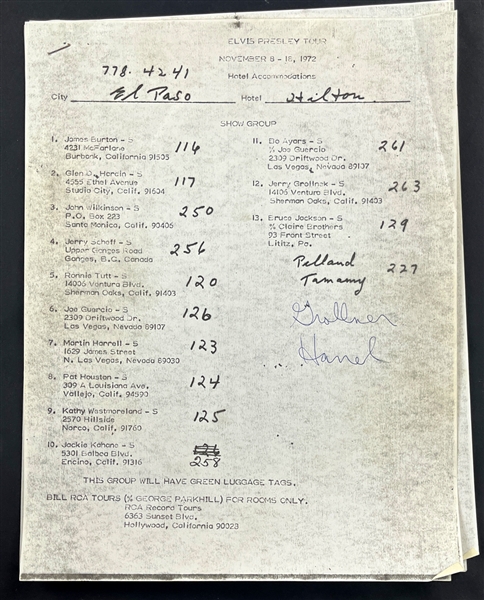 ELVIS PRESLEY TOUR
NOVEMBER 8 - 18, 1972
778.4241
Hotel Accommodations
City El Paso Hotel Hilton
SHOW GROUP
1. James Burton - S 116
4231 McFarlane
Burbank, California 91505
2. Glen D. Hardin - S 117
4555 Ethel Avenue
Studio City, Calif. 91604
3. John Wilkinson - S 250
P.O. Box 223
Santa Monica, Calif. 90406
4. Jerry Scheff - S 256
Upper Ganges Road
Ganges, B.C. Canada
5. Ronnie Tutt - S 120
14006 Ventura Blvd.
Sherman Oaks, Calif. 91403
6. Joe Guercio - S 126
2309 Driftwood Dr.
Las Vegas, Nevada 89107
7. Martin Harrell - S 123
1629 James Street
N. Las Vegas, Nevada 89030
8. Pat Houston - S 124
309 A Louisiana Ave.
Vallejo, Calif. 94590
9. Kathy Westmoreland - S 125
2570 Hillside
Norco, Calif. 91760
10. Jackie Kahane - S
5301 Balboa Blvd.
Encino, Calif. 91316 258
11. Do Ayers - S 261
% Joe Guercio
2309 Driftwood Dr.
Las Vegas, Nevada 89107
12. Jerry Grollnek - S 263
14106 Ventura Blvd.
Sherman Oaks, Calif. 91403
13. Bruce Jackson - S 129
% Claire Brothers
93 Front Street
Lititz, Pa.
Pelland 227
Tammy
Grollner
Harrel
THIS GROUP WILL HAVE GREEN LUGGAGE TAGS.
BILL RCA TOURS (% GEORGE PARKHILL) FOR ROOMS ONLY.
RCA Record Tours
6363 Sunset Blvd.
Hollywood, California 90028